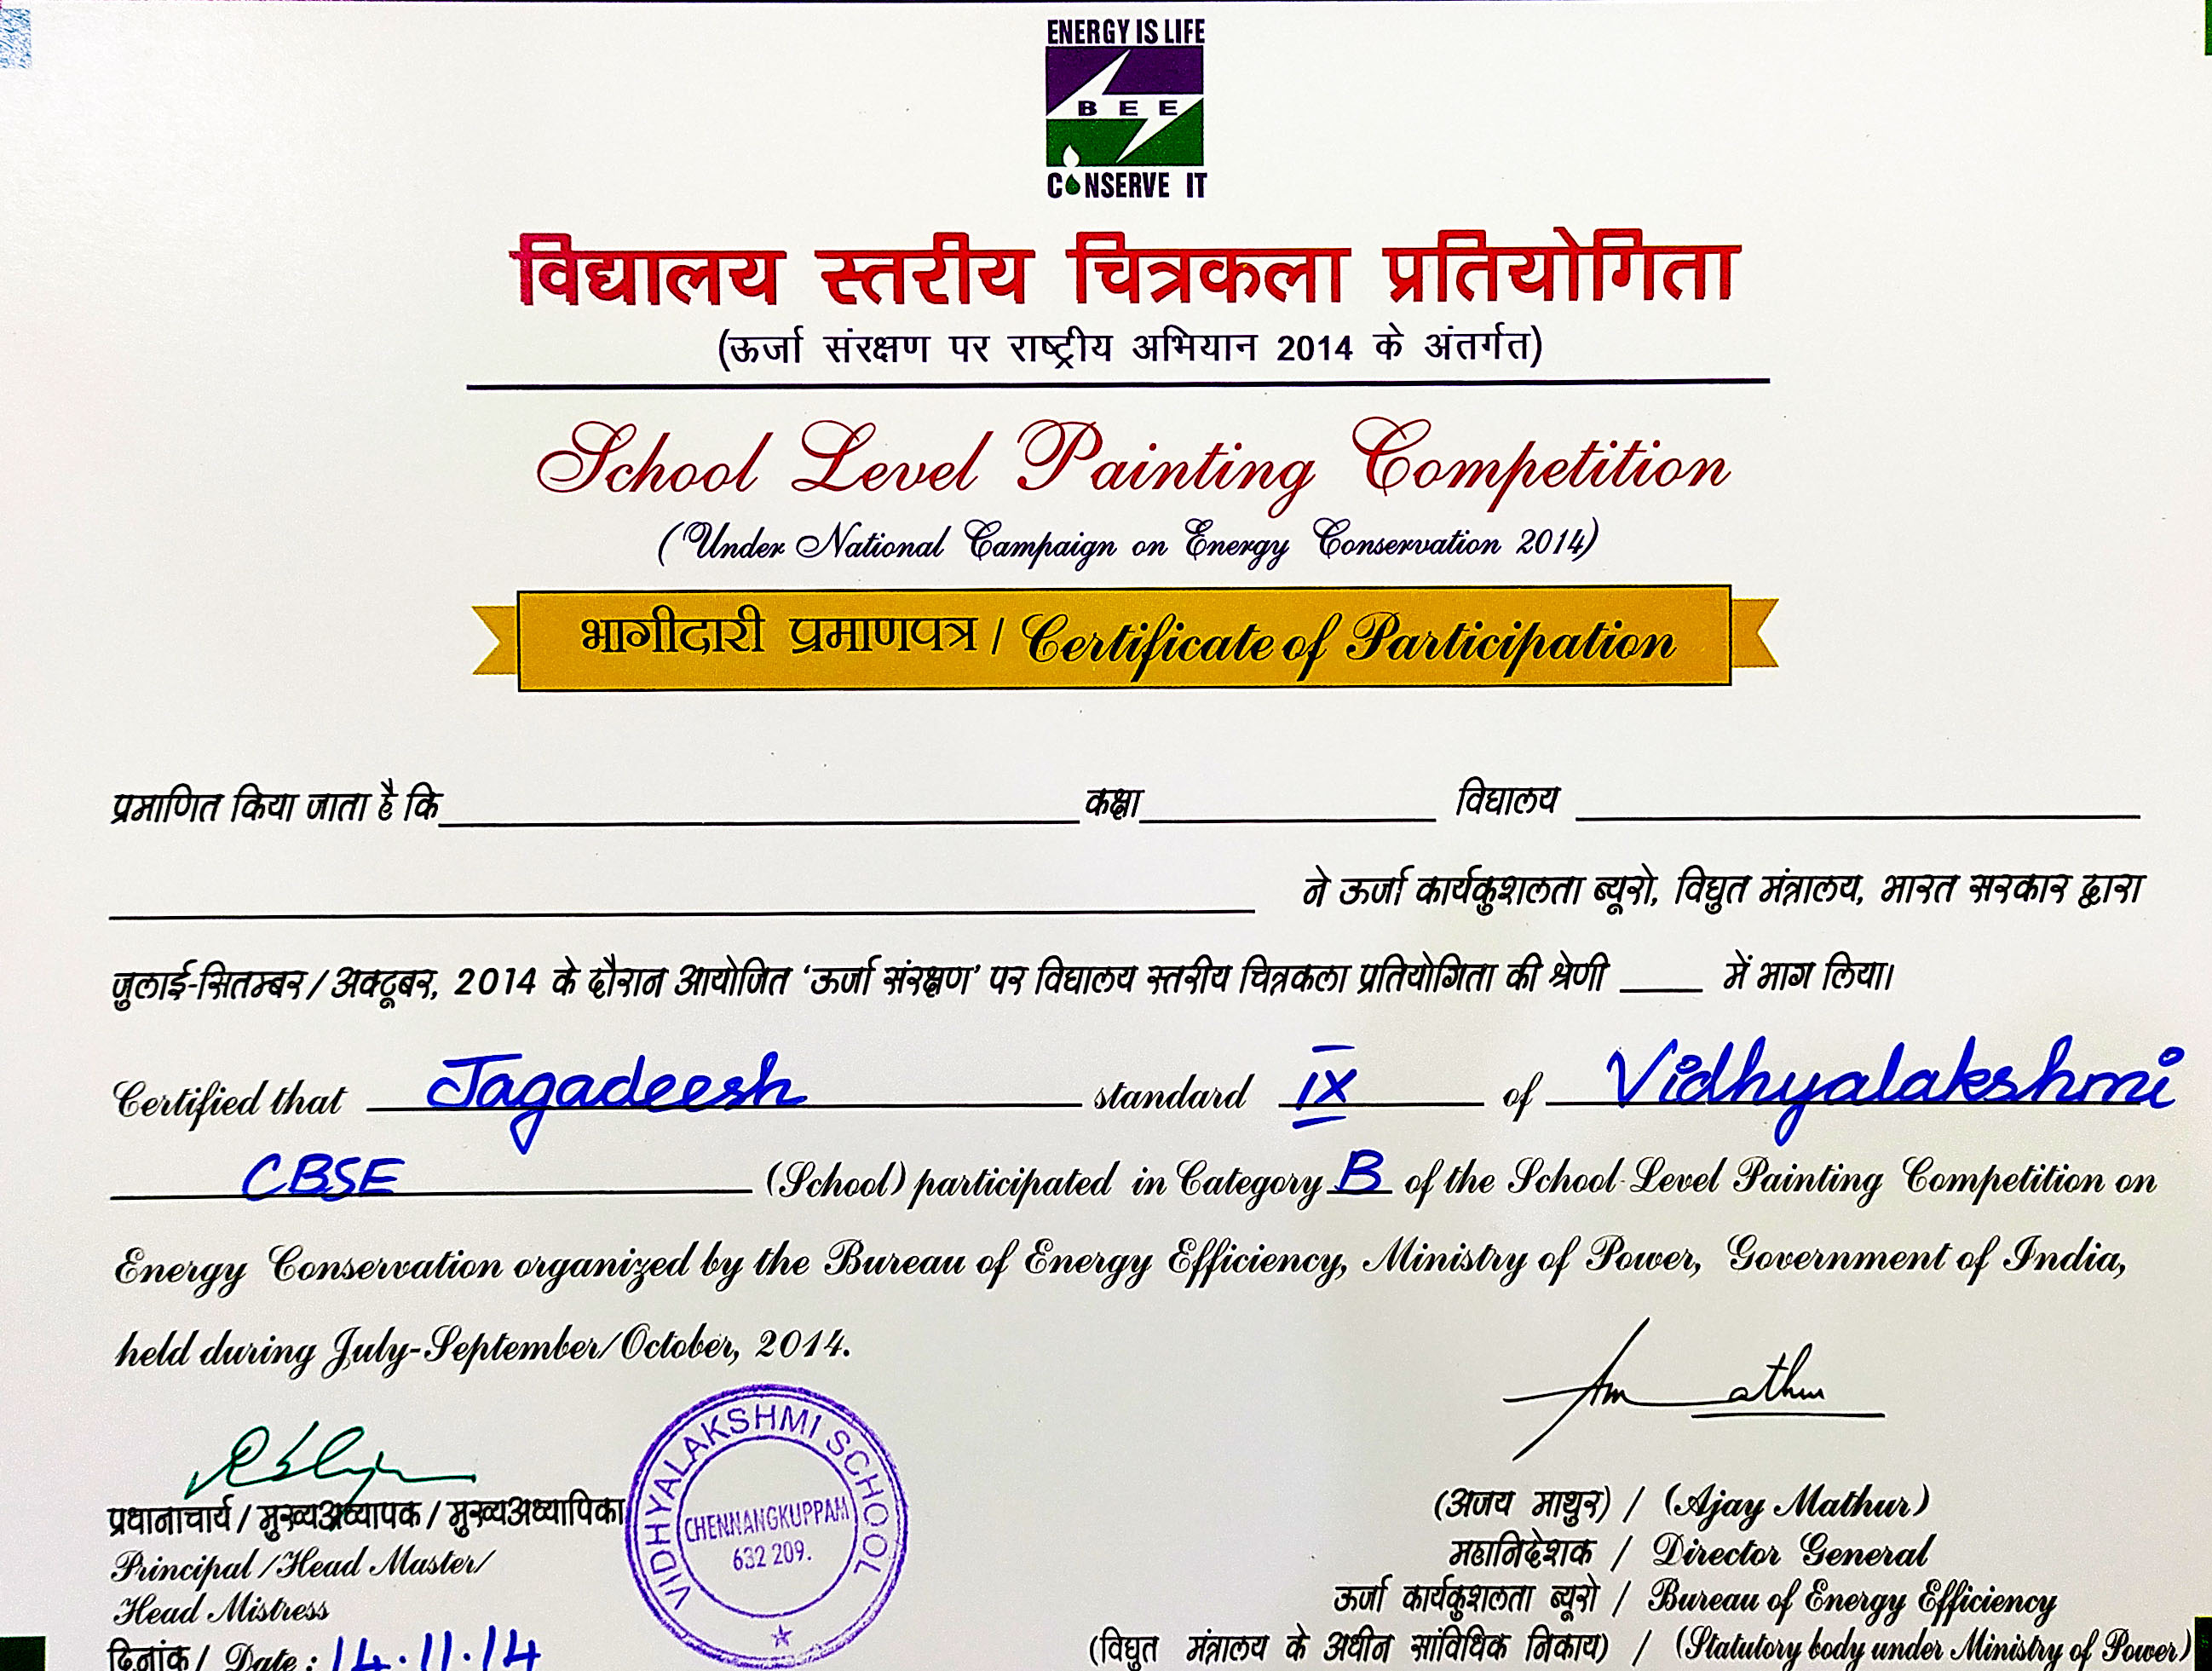 ENERGY IS LIFE
BEE
CONSERVE IT
विद्यालय स्तरीय चित्रकला प्रतियोगिता
(ऊर्जा संरक्षण पर राष्ट्रीय अभियान 2014 के अंतर्गत)
School Level Painting Competition
(Under National Campaign on Energy Conservation 2014)
भागीदारी प्रमाणपत्र / Certificate of Participation
प्रमाणित किया जाता है कि कक्षा विद्यालय
ने ऊर्जा कार्यकुशलता ब्यूरो, विद्युत मंत्रालय, भारत सरकार द्वारा
जुलाई-सितम्बर/अक्टूबर, 2014 के दौरान आयोजित ‘ऊर्जा संरक्षण’ पर विद्यालय स्तरीय चित्रकला प्रतियोगिता की श्रेणी में भाग लिया।
Certified that Jagadeesh standard IX of Vidhyalakshmi
CBSE (School) participated in Category B of the School Level Painting Competition on
Energy Conservation organized by the Bureau of Energy Efficiency, Ministry of Power, Government of India,
held during July-September/October, 2014.
प्रधानाचार्य/मुख्यअध्यापक/मुख्यअध्यापिका
Principal/Head Master/
Head Mistress
दिनांक/ Date: 14.11.14
VIDHYALAKSHMI SCHOOL
CHENNANGKUPPAM
632 209.
(अजय माथुर) / (Ajay Mathur)
महानिदेशक / Director General
ऊर्जा कार्यकुशलता ब्यूरो / Bureau of Energy Efficiency
(विद्युत मंत्रालय के अधीन सांविधिक निकाय) / (Statutory body under Ministry of Power)